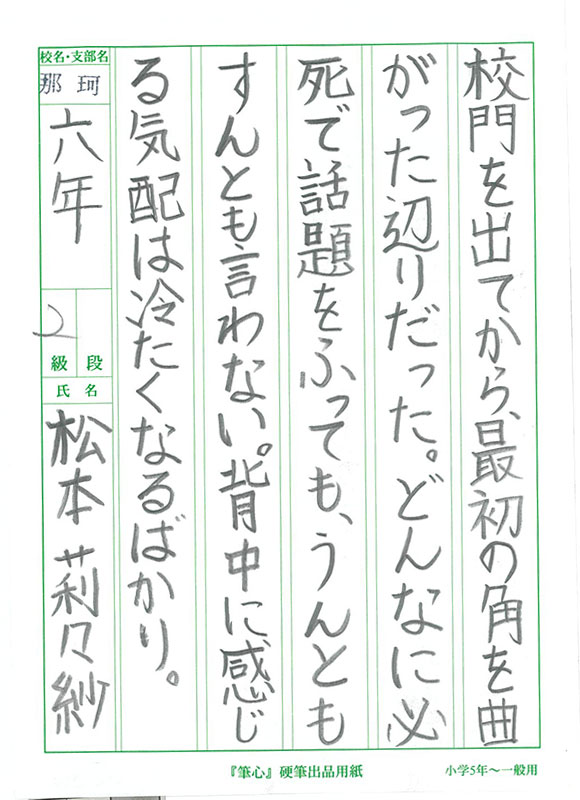 校門を出てから、最初の角を曲
がった辺りだった。どんなに必
死で話題をふっても、うんとも
すんとも言わない。背中に感じ
る気配は冷たくなるばかり。
校名・支部名
那珂
六年
2
級 段
氏名
松本莉々紗
『筆心』硬筆出品用紙
小学5年〜一般用